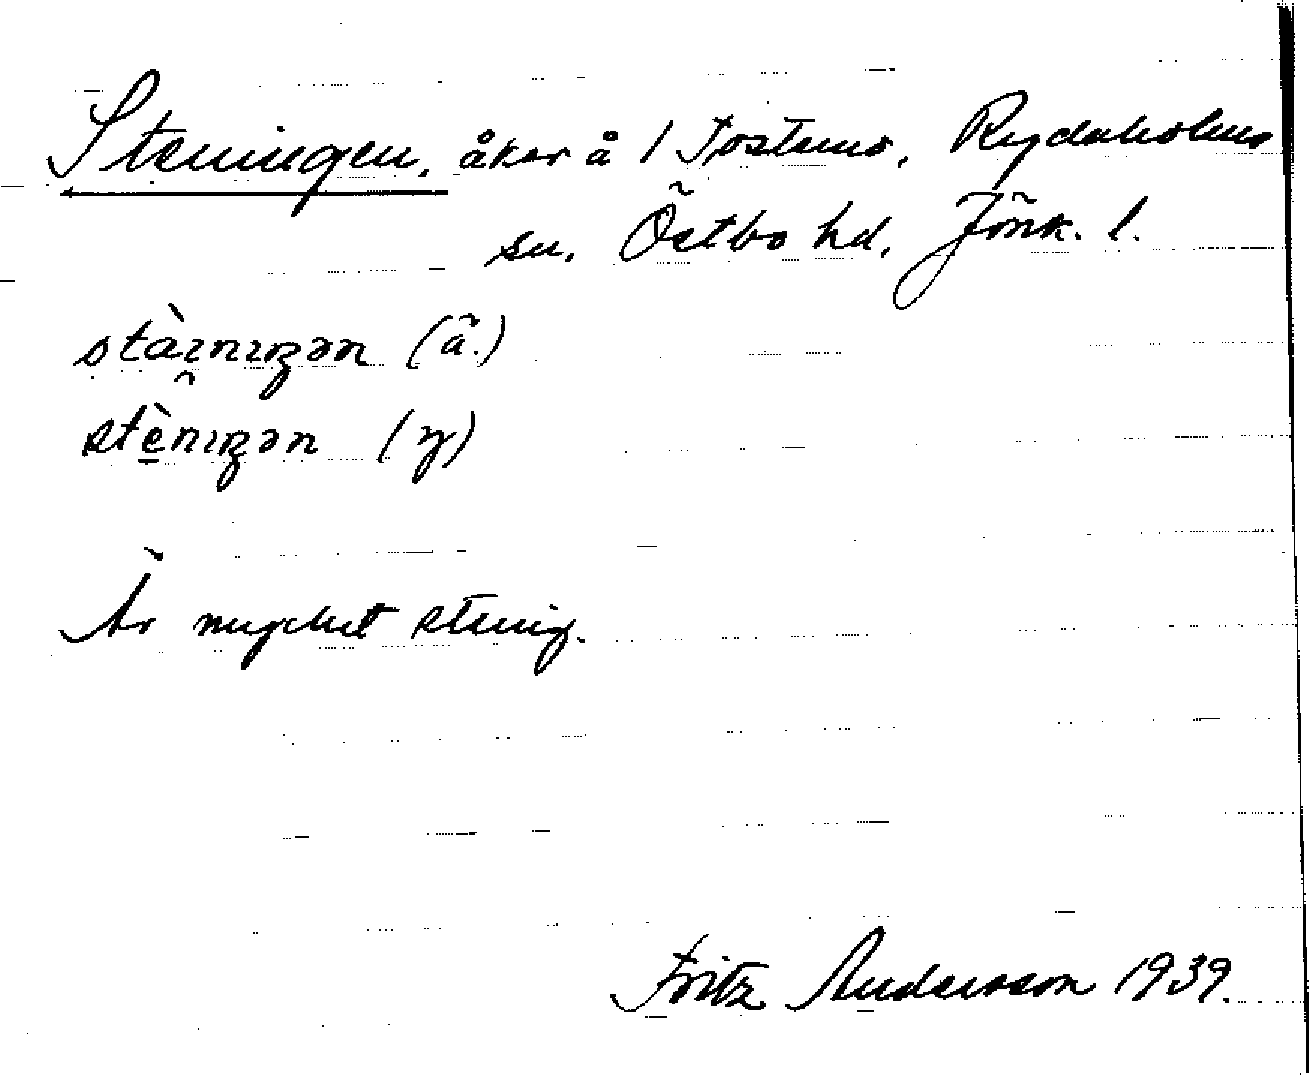 Steningen, åker å 1 Tostemo, Rydaholms
sn, Östbo hd, Jönk. l.
stàɪnɪŋən (ä.)
stènɪŋən (y)
Är mycket stenig.
Fritz Andersson 1939.